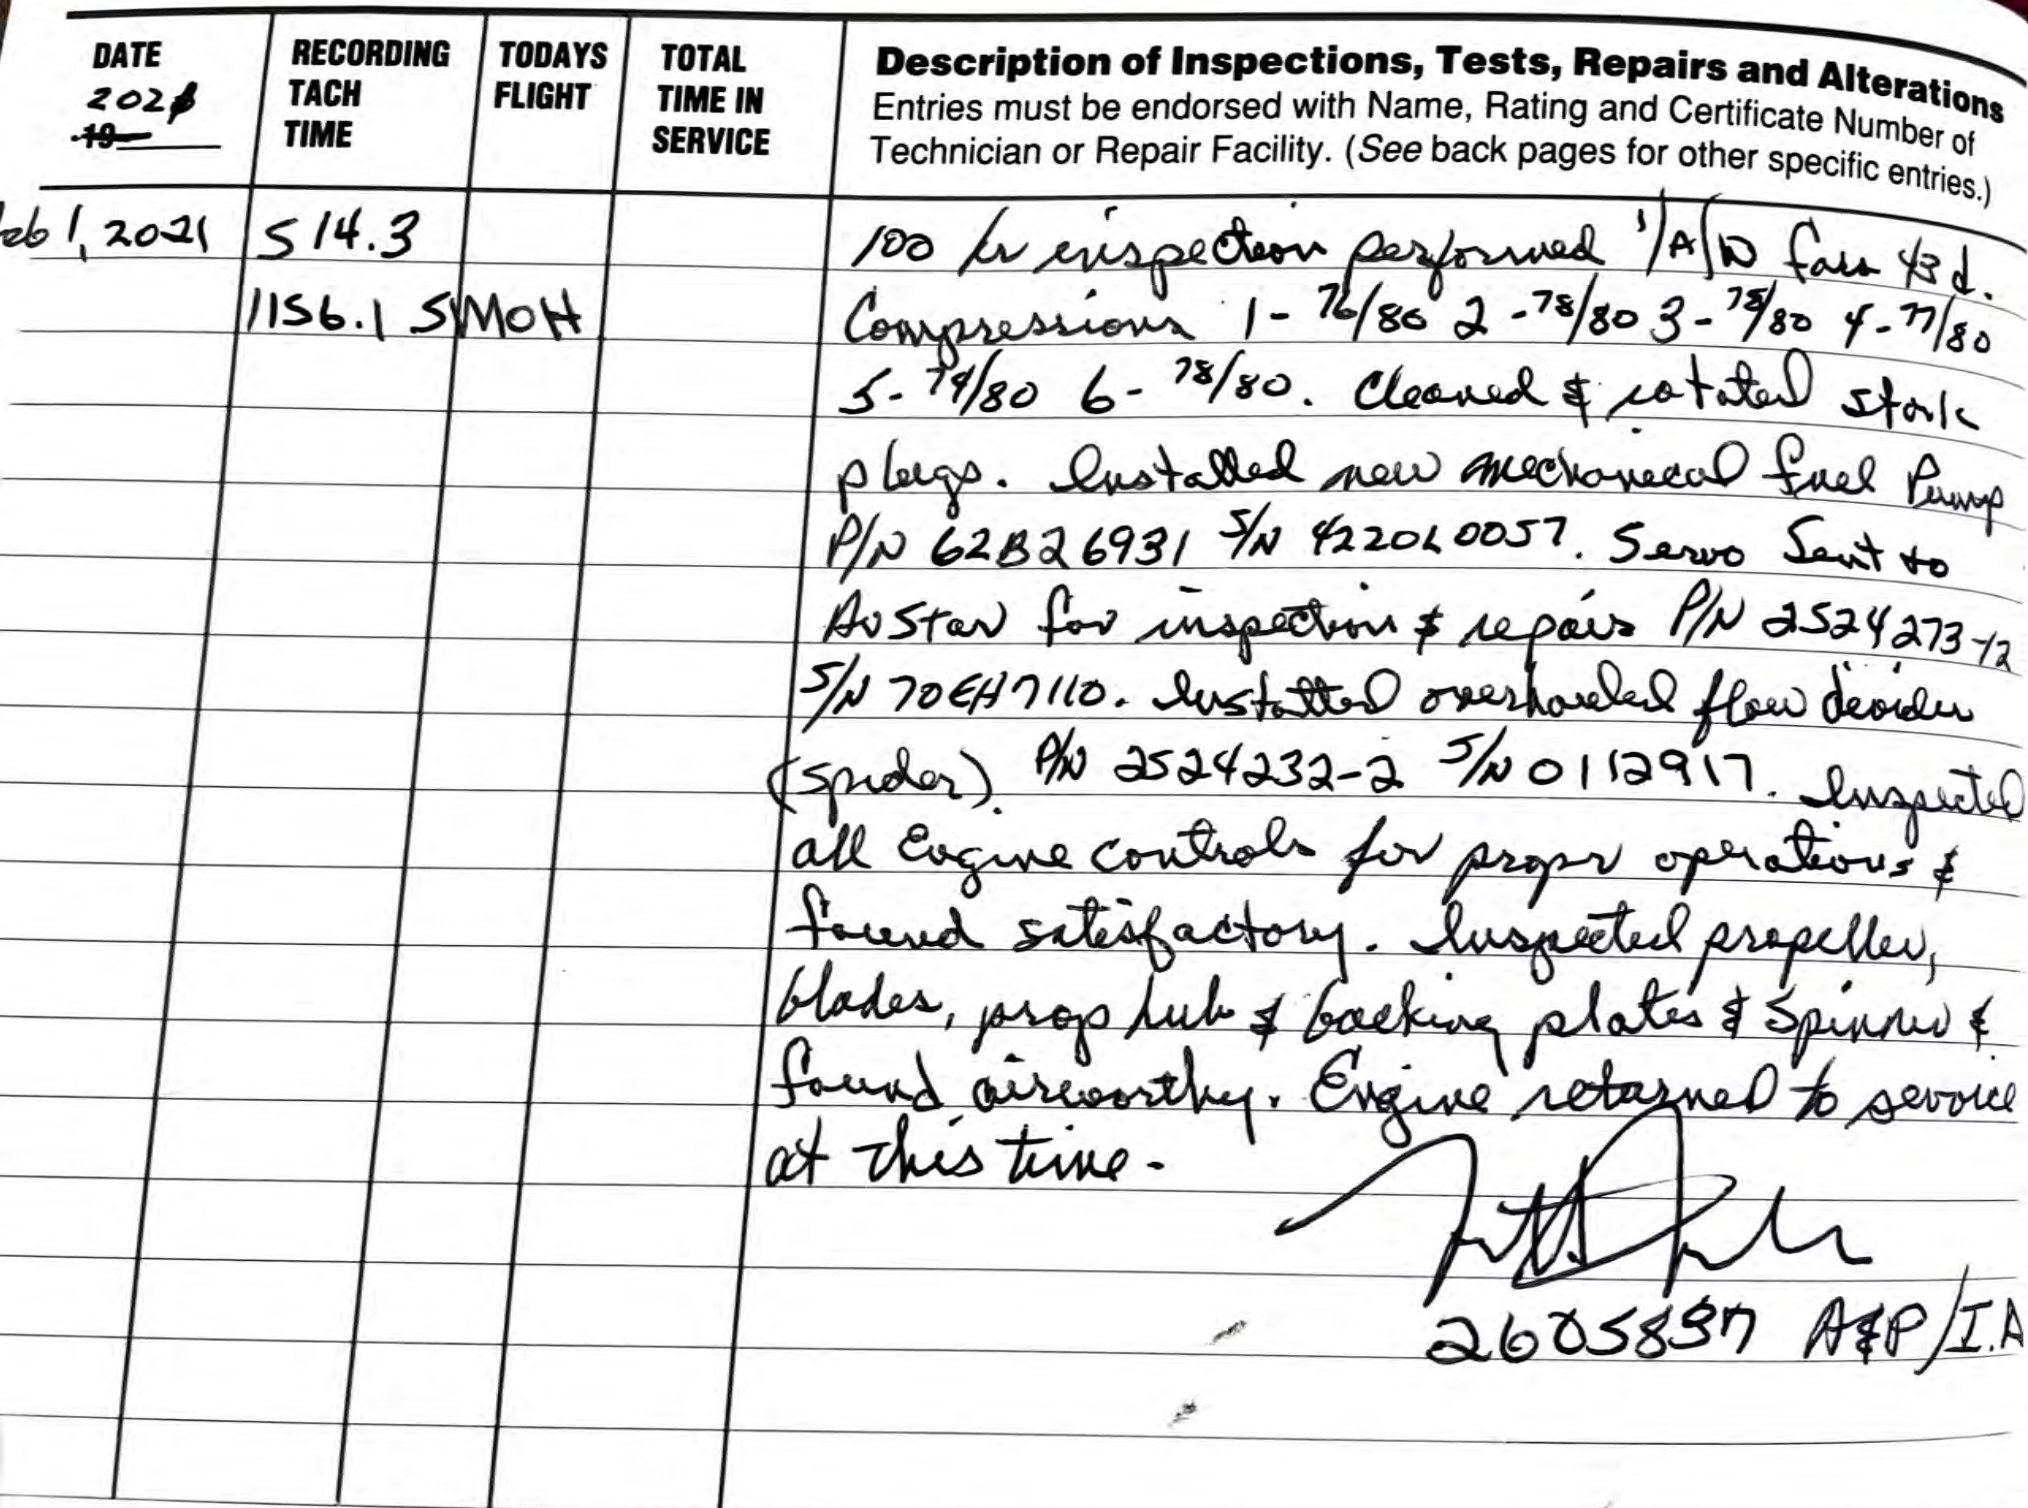 DATE RECORDING TODAYS TOTAL Description of Inspections, Tests, Repairs and Alterations
2021 TACH FLIGHT TIME IN Entries must be endorsed with Name, Rating and Certificate Number of
19 TIME SERVICE Technician or Repair Facility. (See back pages for other specific entries.)
eb 1, 2021 514.3 100 hr inspection performed I/A/W Fars 43 d.
1156.1 SMOH Compressions 1-76/80 2-78/80 3-78/80 4-77/80
5-79/80 6-78/80. Cleaned & rotated
plugs. Installed new mechanical fuel Pump
P/N 62B26931 S/N 4220L0057. Servo Sent to
AvStar for inspection & repair P/N 2524273-12
S/N 70EH7110. Installed overhauled flow devider
(spider). P/N 2524232-2 S/N 0112917. Inspected
all Engine controls for proper operations &
found satisfactory. Inspected propeller,
blades, prop hub & backing plates & Spinner &
found airworthy. Engine returned to service
at this time.
2605837 A&P/I.A